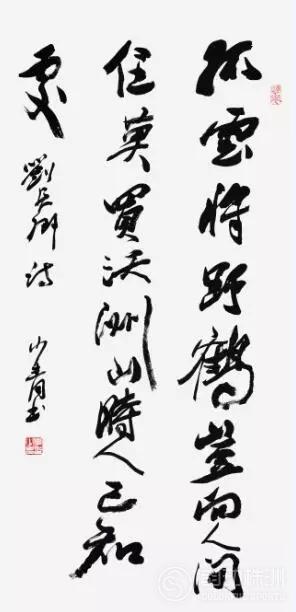 孤雲將野鶴豈向人間
住莫買沃洲山時人已知
處 劉長卿詩
书
株洲